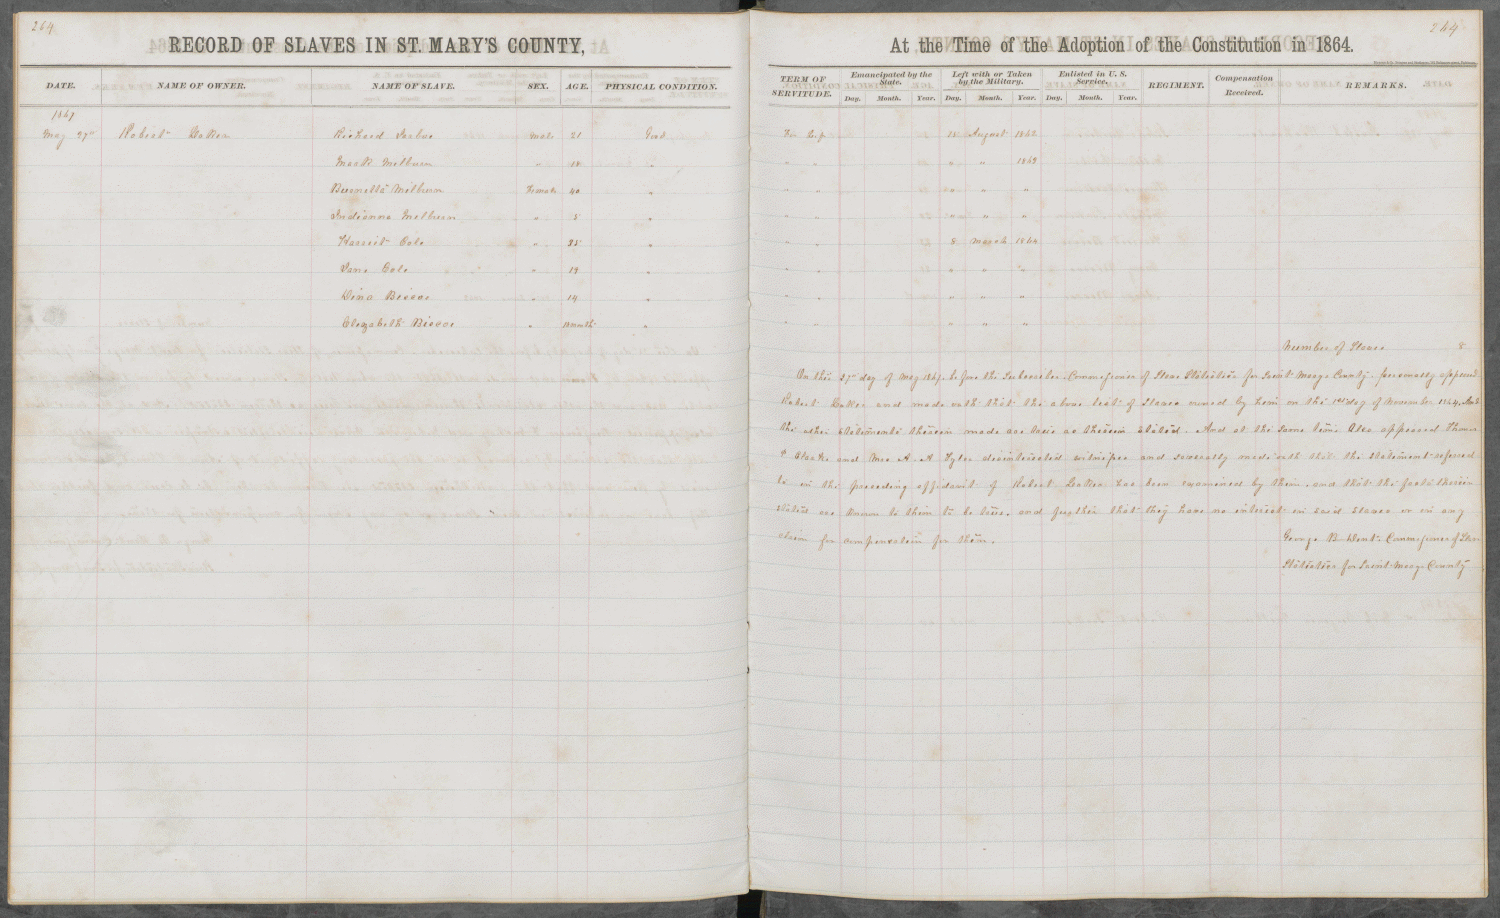 264
264
RECORD OF SLAVES IN ST. MARY'S COUNTY,
At the Time of the Adoption of the Constitution in 1864.
DATE. NAME OF OWNER. NAME OF SLAVE. SEX. AGE. PHYSICAL CONDITION.
TERM OF SERVITUDE. Emancipated by the State. Day. Month. Year. Left with or Taken by the Military. Day. Month. Year. Enlisted in U. S. Service. Day. Month. Year. REGIMENT. Compensation Received. REMARKS.
1867
May 27" Robert Richard male 21 Good For Life 15 August 1862
Mark Milburn " 18 " " " " " 1863
Milburn Female 40 " " " " " "
Indianna Milburn " 5 " " " " " "
Harriet Cole " 35 " " " 8 March 1864
Jane Cole " 19 " " " " " "
Biscoe " 14 " " " " " "
Elizabeth Biscoe " " " " " " "
Number of Slaves 8
On this 27" day of May 1867, before the Subscriber, Commissioner of Slave Statistics for Saint Marys County, personally appeared
Robert and made oath that the above list of Slaves owned by him on the 1st day of November 1864, And
the other Statements therein made are true as therein Stated. And at the same time Also appeared
and A. disinterested witnesses and severally made oath that the Statement referred
to in the preceding affidavit of Robert has been examined by them, and that the facts therein
Stated are known to them to be true, and further that they have no interest in said Slaves or in any
claim for compensation for them.
George B. Dent Commissioner of Slave
Statistics for Saint Marys County